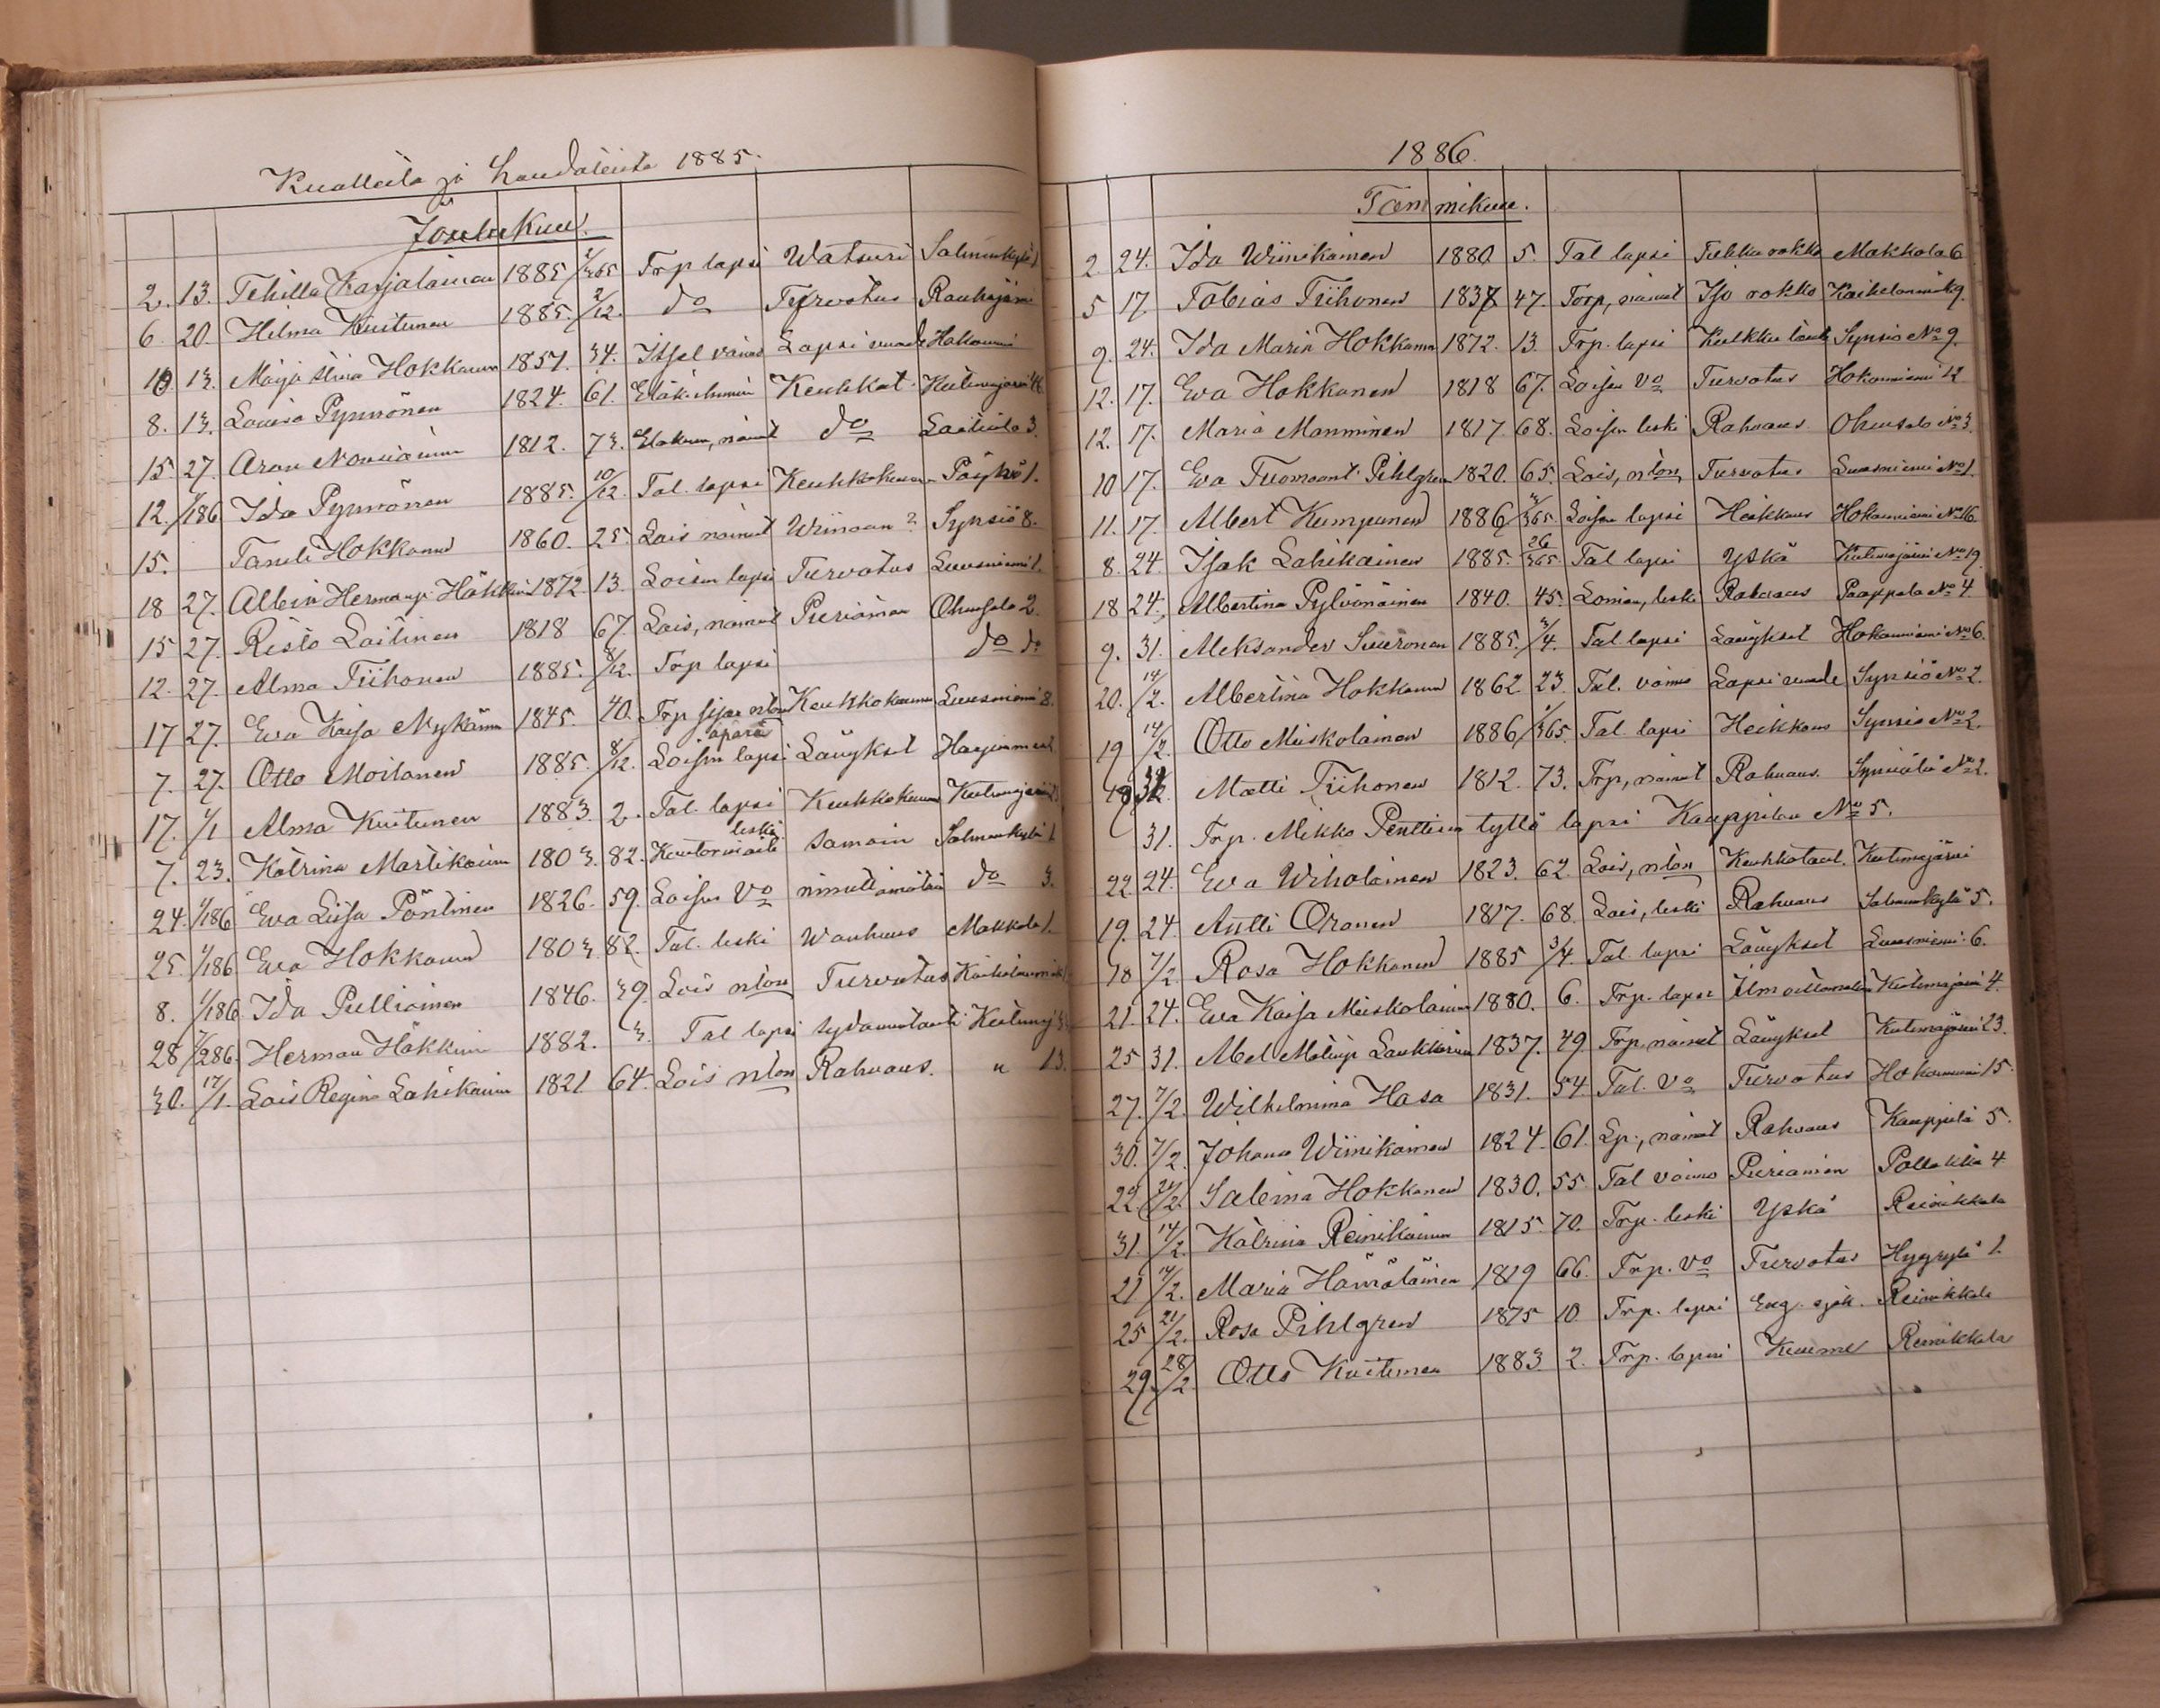 Kuolleita ja haudateista 1885.
Joulukuu.
2. 13. Tehilla Karjalainen 1885 /365 Trp lapsi Watsuri Salmenkylä 1
6. 20. Hilma Kuitunen 1885. 2/12. do Turvotus Rauhajärvi
10. 13. Maija Stina Hokkanen 1851. 34. Itsel. vaimo Lapsi vuode Hokanniemi
8. 13. Lovisa Pynnönen 1824. 61. Keuhkot Kutemajärvi
15. 27. Aron Nousiainen 1812. 73. Elakun, nainut do Laitiala 3.
12. 1/186 Ida Pynnönen 1885. 10/12. Tal. lapsi Keuhkokuume 1.
15. Taneli Hokkanen 1860. 25. Lois nainut Wiinaan? Synsiö 8.
18 27. Albin Hermanp. Häkkin. 1872. 13. Loisen lapsi Turvotus Luusniemi 1.
15 27. Risto Laitinen 1818 67. Lois, nainut Pieriämen Ohensalo 2.
12. 27. Alma Tiihonen 1885. 8/12. Trp lapsi do do
17 27. Eva Kaisa Nykänen 1845. 40. Trp sisar nton Keuhkokuume Luusniemi 8.
7. 27. Otto Moilanen 1885. 8/12. Loisen äpärä lapsi Läugkset
17. 1/1 Alma Kuitunen 1883. 2. Tal. lapsi Keuhkokuume Kutemajärvi
7. 23. Katrina Martikainen 1803. 82. leski samoin Salmenkylä 1
24. 1/186 Eva Liisa Pöntinen 1826. 59. Loisen Vo do 3.
25. 1/186 Eva Hokkanen 1803. 82. Tal. leski Wanhuus Makkola 1.
8. 1/186 Ida Pulliainen 1846. 39. Lois nton Turvotus
28 7/286. Herman Häkkinen 1882. 3. Tal lapsi sydamentauti Kutemaj
30. 17/1. Lois Regina Lahikainen 1821 64. Lois nton Rahvaus. " 13.
1886.
Tammikuu.
2. 24. Ida Wiinikainen 1880. 5. Tal lapsi Tuhka rokko Makkola 6
5 17. Tobias Tiihonen 1837 47. Torp, nainut Iso rokko
9. 24. Ida Maria Hokkanen 1872. 13. Trp. lapsi Kulkku tauti Synsiö No 9.
12. 17. Eva Hokkanen 1818 67. Loisen Vo Turvotus Hokanniemi 12
12. 17. Maria Manninen 1817 68. Loisen leski Rahvaus Ohensalo No 3.
10 17. Eva Tuomaant. Pihlgren 1820. 65. Lois, nton Turvotus Luusniemi No 1.
11. 17. Albert Kumpunen 1886 /365. Loisen lapsi Heikkous Hokanniemi No 16.
8. 24. Isak Lahikainen 1885. 26/365. Tal lapsi Yskä Kutemajärvi No 19.
18 24. Albertina Pylvänäinen 1840. 45. Loisen, leski Rahvaus Paappala No 4.
9. 31. Aleksander Suuronen 1885. 3/4. Tal lapsi Läugkset Hokanniemi No 6.
20. 14/2. Albertina Hokkanen 1862. 23. Tal. vaimo Lapsi vuode Synsiö No 2.
19 14/2. Otto Miskolainen 1886 1/365. Tal. lapsi Heikkous Synsiö No 2.
19 31. Matti Tiihonen 1812. 73. Trp, nainut Rahvaus. No 2.
31. Trp. Mikko Penttisen tyttö lapsi Kauppilan No 5.
22. 24. Eva Wiholainen 1823. 62. Lois, nton Keuhkotaut. Kutemajärvi
19. 24. Antti Oranen 1817. 68. Lois, leski Rahvaus Salmenkylä 5.
18 7/2. Rosa Hokkanen 1885 3/4. Tal lapsi Läugkset Luusniemi 6.
21. 24. Eva Kaisa Miskolainen 1880. 6. Trp. lapsi Ilmoittamaton Kutemajärvi 4.
25 31. Abel Matinp. Laukkarinen 1837. 49. Trp, nainut Läugkset Kutemajärvi 23.
27. 7/2. Wilhelmina Hasa 1831. 54 Tal. Vo Turvotus Hokanniemi 15.
30. 7/2. Johana Wiinikainen 1824. 61. Lp., nainut Rahvaus Kauppila 5.
22. 21/2. Salema Hokkanen 1830. 55 Tal vaimo Pieriämen Pollakka 4
31. 14/2. Katrina Reinikainen 1815. 70. Trp. leski Yskä Reinikkala
21 14/2. Maria Hämäläinen 1819 66. Trp. Vo Turvotus 1.
25 21/2. Rosa Pihlgren 1875 10. Trp. lapsi Reinikkala
29. 28/2. Otto Kuitunen 1883. 2. Trp. lapsi Kuume Reinikkala